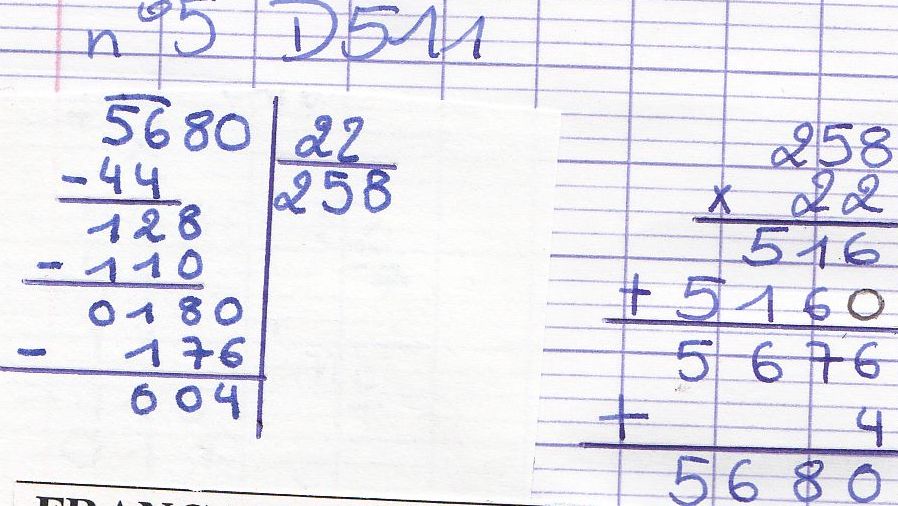 n°5 D511
5680 22
-44 258
128
-110
0180
- 176
004
258
x 22
516
+ 5160
5676
+ 4
5680